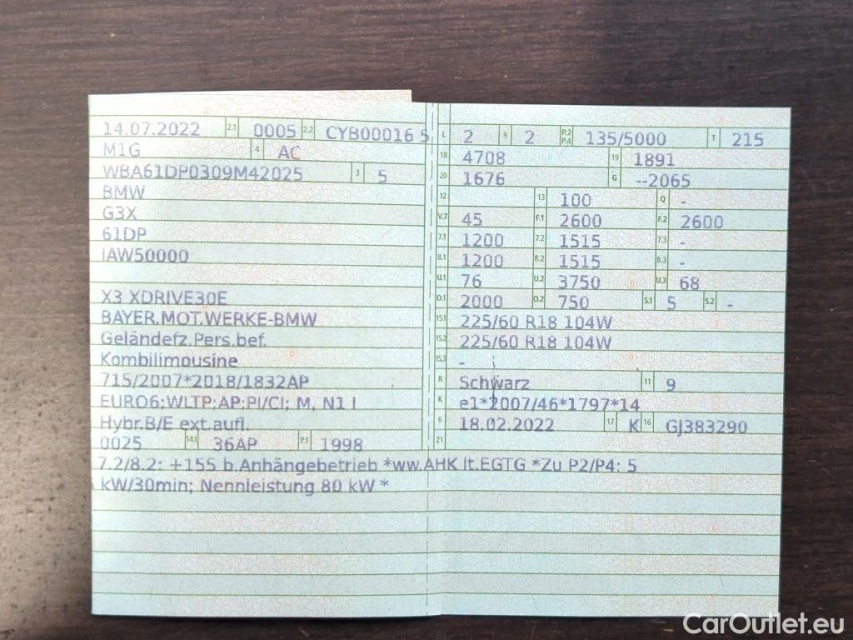 14.07.2022 2.1 0005 2.2 CYB00016 5
M1G 4 AC
WBA61DP0309M42025 3 5
BMW
G3X
61DP
IAW50000
X3 XDRIVE30E
BAYER.MOT.WERKE-BMW
Geländefz.Pers.bef.
Kombilimousine
715/2007*2018/1832AP
EURO6;WLTP;AP;PI/CI; M, N1 I
Hybr.B/E ext.aufl.
0025 14.1 36AP P.1 1998
L 2 9 2 P.2 P.4 135/5000 T 215
18 4708 19 1891
20 1676 G --2065
12 13 100 Q -
V.7 45 F.1 2600 F.2 2600
7.1 1200 7.2 1515 7.3 -
8.1 1200 8.2 1515 8.3 -
U.1 76 U.2 3750 U.3 68
O.1 2000 O.2 750 S.1 5 S.2 -
15.1 225/60 R18 104W
15.2 225/60 R18 104W
15.3 -
R Schwarz 11 9
K e1*2007/46*1797*14
6 18.02.2022 17 K 16 GJ383290
21
7.2/8.2: +155 b.Anhängebetrieb *ww.AHK lt.EGTG *Zu P2/P4: 5
kW/30min; Nennleistung 80 kW *
CarOutlet.eu